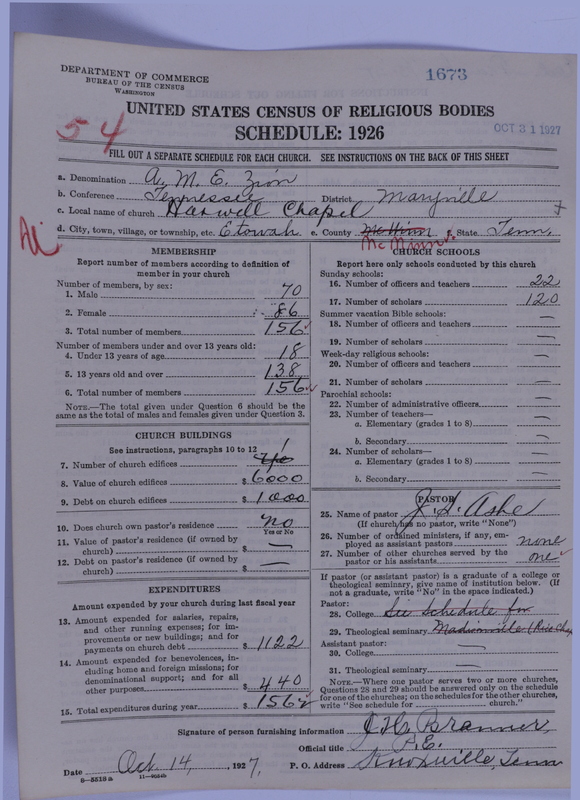 1673
DEPARTMENT OF COMMERCE
BUREAU OF THE CENSUS
WASHINGTON
UNITED STATES CENSUS OF RELIGIOUS BODIES
SCHEDULE: 1926
OCT 31 1927
54
FILL OUT A SEPARATE SCHEDULE FOR EACH CHURCH. SEE INSTRUCTIONS ON THE BACK OF THIS SHEET
a. Denomination A. M. E. Zion
b. Conference Tennessee District Maryville
c. Local name of church Harwell Chapel
d. City, town, village, or township, etc. Etowah e. County McMinn f. State Tenn.
McMinn
MEMBERSHIP
Report number of members according to definition of
member in your church
Number of members, by sex:
1. Male 70
2. Female 86
3. Total number of members 156
Number of members under and over 13 years old:
4. Under 13 years of age 18
5. 13 years old and over 138
6. Total number of members 156
NOTE.—The total given under Question 6 should be the
same as the total of males and females given under Question 3.
CHURCH BUILDINGS
See instructions, paragraphs 10 to 12
7. Number of church edifices 1
8. Value of church edifices $ 6000
9. Debt on church edifices $ 1000
10. Does church own pastor's residence No
Yes or No
11. Value of pastor's residence (if owned by
church) $ —
12. Debt on pastor's residence (if owned by
church) $ —
EXPENDITURES
Amount expended by your church during last fiscal year
13. Amount expended for salaries, repairs,
and other running expenses; for im-
provements or new buildings; and for
payments on church debt $ 1122
14. Amount expended for benevolences, in-
cluding home and foreign missions; for
denominational support; and for all
other purposes $ 440
15. Total expenditures during year $ 1562
CHURCH SCHOOLS
Report here only schools conducted by this church
Sunday schools:
16. Number of officers and teachers 22
17. Number of scholars 120
Summer vacation Bible schools:
18. Number of officers and teachers —
19. Number of scholars —
Week-day religious schools:
20. Number of officers and teachers —
21. Number of scholars —
Parochial schools:
22. Number of administrative officers —
23. Number of teachers—
a. Elementary (grades 1 to 8) —
b. Secondary —
24. Number of scholars—
a. Elementary (grades 1 to 8) —
b. Secondary —
PASTOR
25. Name of pastor Ashe
(If church has no pastor, write "None")
26. Number of ordained ministers, if any, em-
ployed as assistant pastors none
27. Number of other churches served by the
pastor or his assistants one
If pastor (or assistant pastor) is a graduate of a college or
theological seminary, give name of institution below. (If
not a graduate, write "No" in the space indicated.)
Pastor:
28. College See Schedule for
29. Theological seminary Madisonville (Rice Chap
Assistant pastor:
30. College —
31. Theological seminary —
NOTE.—Where one pastor serves two or more churches,
Questions 28 and 29 should be answered only on the schedule
for one of the churches; on the schedules for the other churches,
write "See schedule for church."
Signature of person furnishing information J. H. Branner,
Official title P. E.
Date Oct. 14, 1927. P. O. Address Knoxville, Tenn
8—5513a 11—9554b